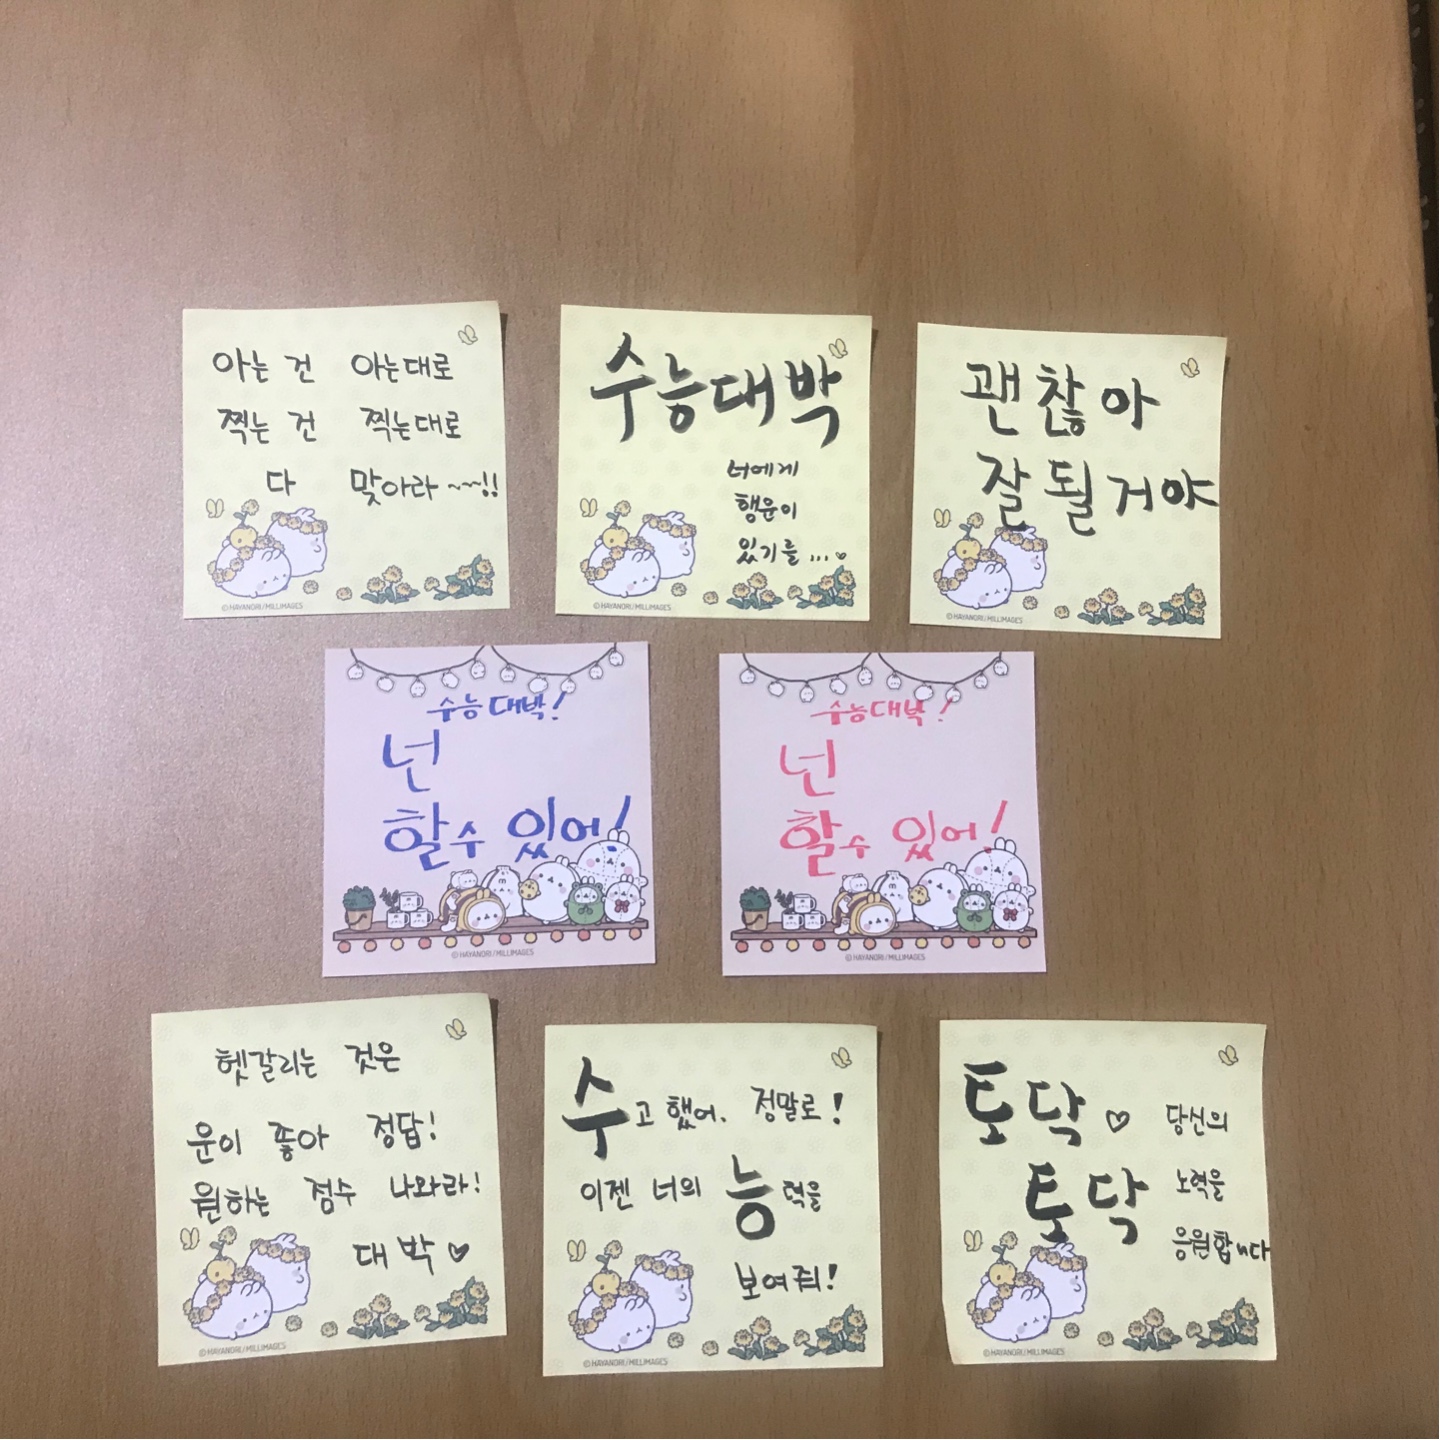 아는 건 아는대로
찍는 건 찍는대로
다 맞아라~~~!!
©HAYANORI/MILLIMAGES
수능대박
너에게
행운이
있기를 ...♡
©HAYANORI/MILLIMAGES
괜찮아
잘 될 거야
©HAYANORI/MILLIMAGES
수능대박!
넌
할 수 있어!
©HAYANORI/MILLIMAGES
수능대박!
넌
할 수 있어!
©HAYANORI/MILLIMAGES
헷갈리는 것은
운이 좋아 정답!
원하는 점수 나와라!
대박♡
©HAYANORI/MILLIMAGES
수고했어. 정말로!
이젠 너의 능력을
보여줘!
©HAYANORI/MILLIMAGES
토닥♡
토닥
당신의
노력을
응원합니다
©HAYANORI/MILLIMAGES